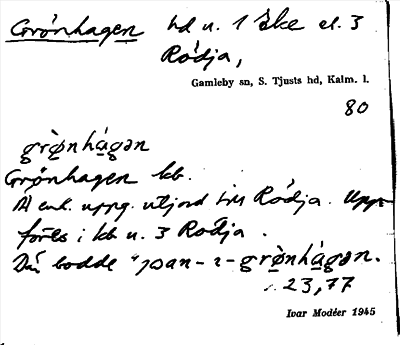 Grönhagen hd u. 1 Åke el. 3
Rödja,
Gamleby sn, S. Tjusts hd, Kalm. l.
80
grò̤nhá̤gən
Grönhagen kb.
Al enl. uppg. utjord till Rödja. Upp-
föres i kb u. 3 Rödja.
Där bodde "joan-ɪ-grò̤nhá̤gən.
23,77
Ivar Modéer 1945